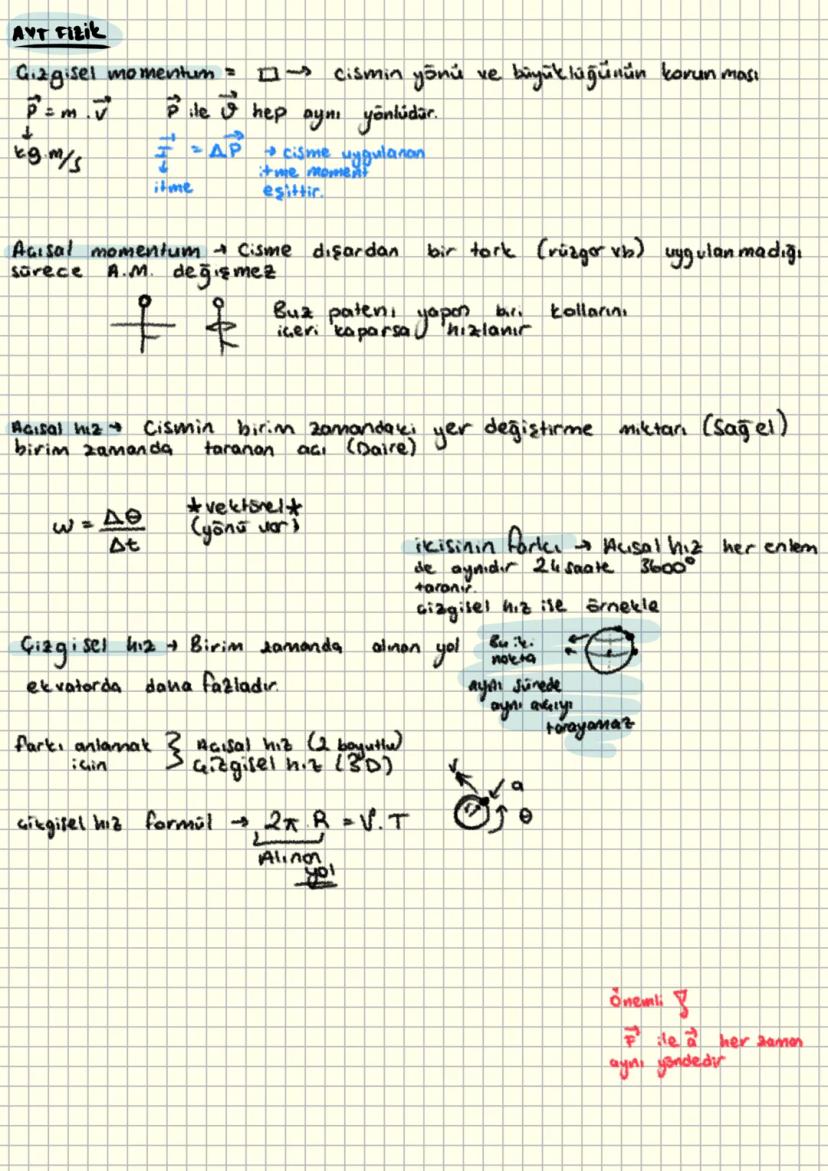 AYT Fizik
Çizgisel momentum = □→ cismin yönü ve büyüklüğünün korunması
p⃗ = m . v⃗ p⃗ ile ϑ⃗ hep aynı yönlüdür.
↓
kg.m/s
I⃗ = ΔP⃗ → cisme uygulanan
↓ itme moment
itme eşittir.
Açısal momentum → Cisme dışardan bir tork (rüzgar vb) uygulanmadığı
sürece A.M. değişmez
Buz pateni yapan biri kollarını
içeri kaparsa hızlanır
Açısal hız → Cismin birim zamandaki yer değiştirme miktarı (Sağ el)
birim zamanda taranan açı (Daire)
ω = Δθ / Δt
*vektörel*
(yönü var)
ikisinin farkı → Açısal hız her enlem
de aynıdır 24 saate 3600°
taranır.
çizgisel hız ise örnekle
Çizgisel hız → Birim zamanda alınan yol
ekvatorda daha fazladır.
Bu iki
nokta
aynı sürede
aynı açıyı
tarayamaz
farkı anlamak } Açısal hız (2 boyutlu)
için } Çizgisel hız (3D)
v a
θ
çizgisel hız formül → 2π.R = V.T
Alınan
yol
Önemli !
F⃗ ile a⃗ her zaman
aynı yöndedir